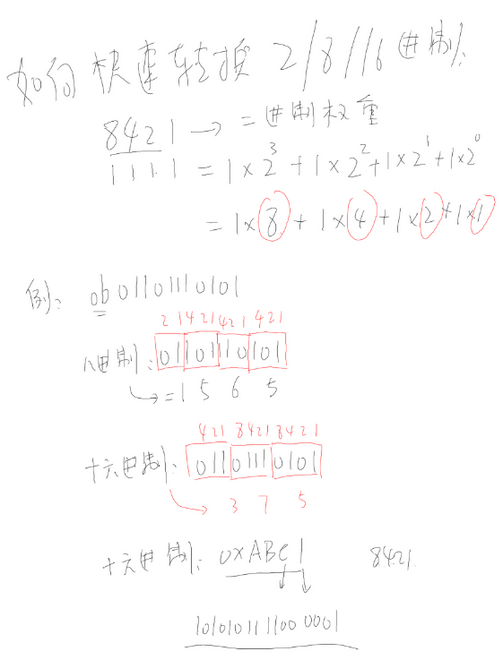 如何快速转换 2/8/16进制
8421 → 二进制权重
1111 = 1×2³ + 1×2² + 1×2¹ + 1×2⁰
= 1×8 + 1×4 + 1×2 + 1×1
例: 0b01101110101
21 421 421 421
八进制: 01 101 110 101
→ = 1 5 6 5
421 8421 8421
十六进制: 011 0111 0101
→ 3 7 5
十六进制: 0xABC1 8421
1010101111000001